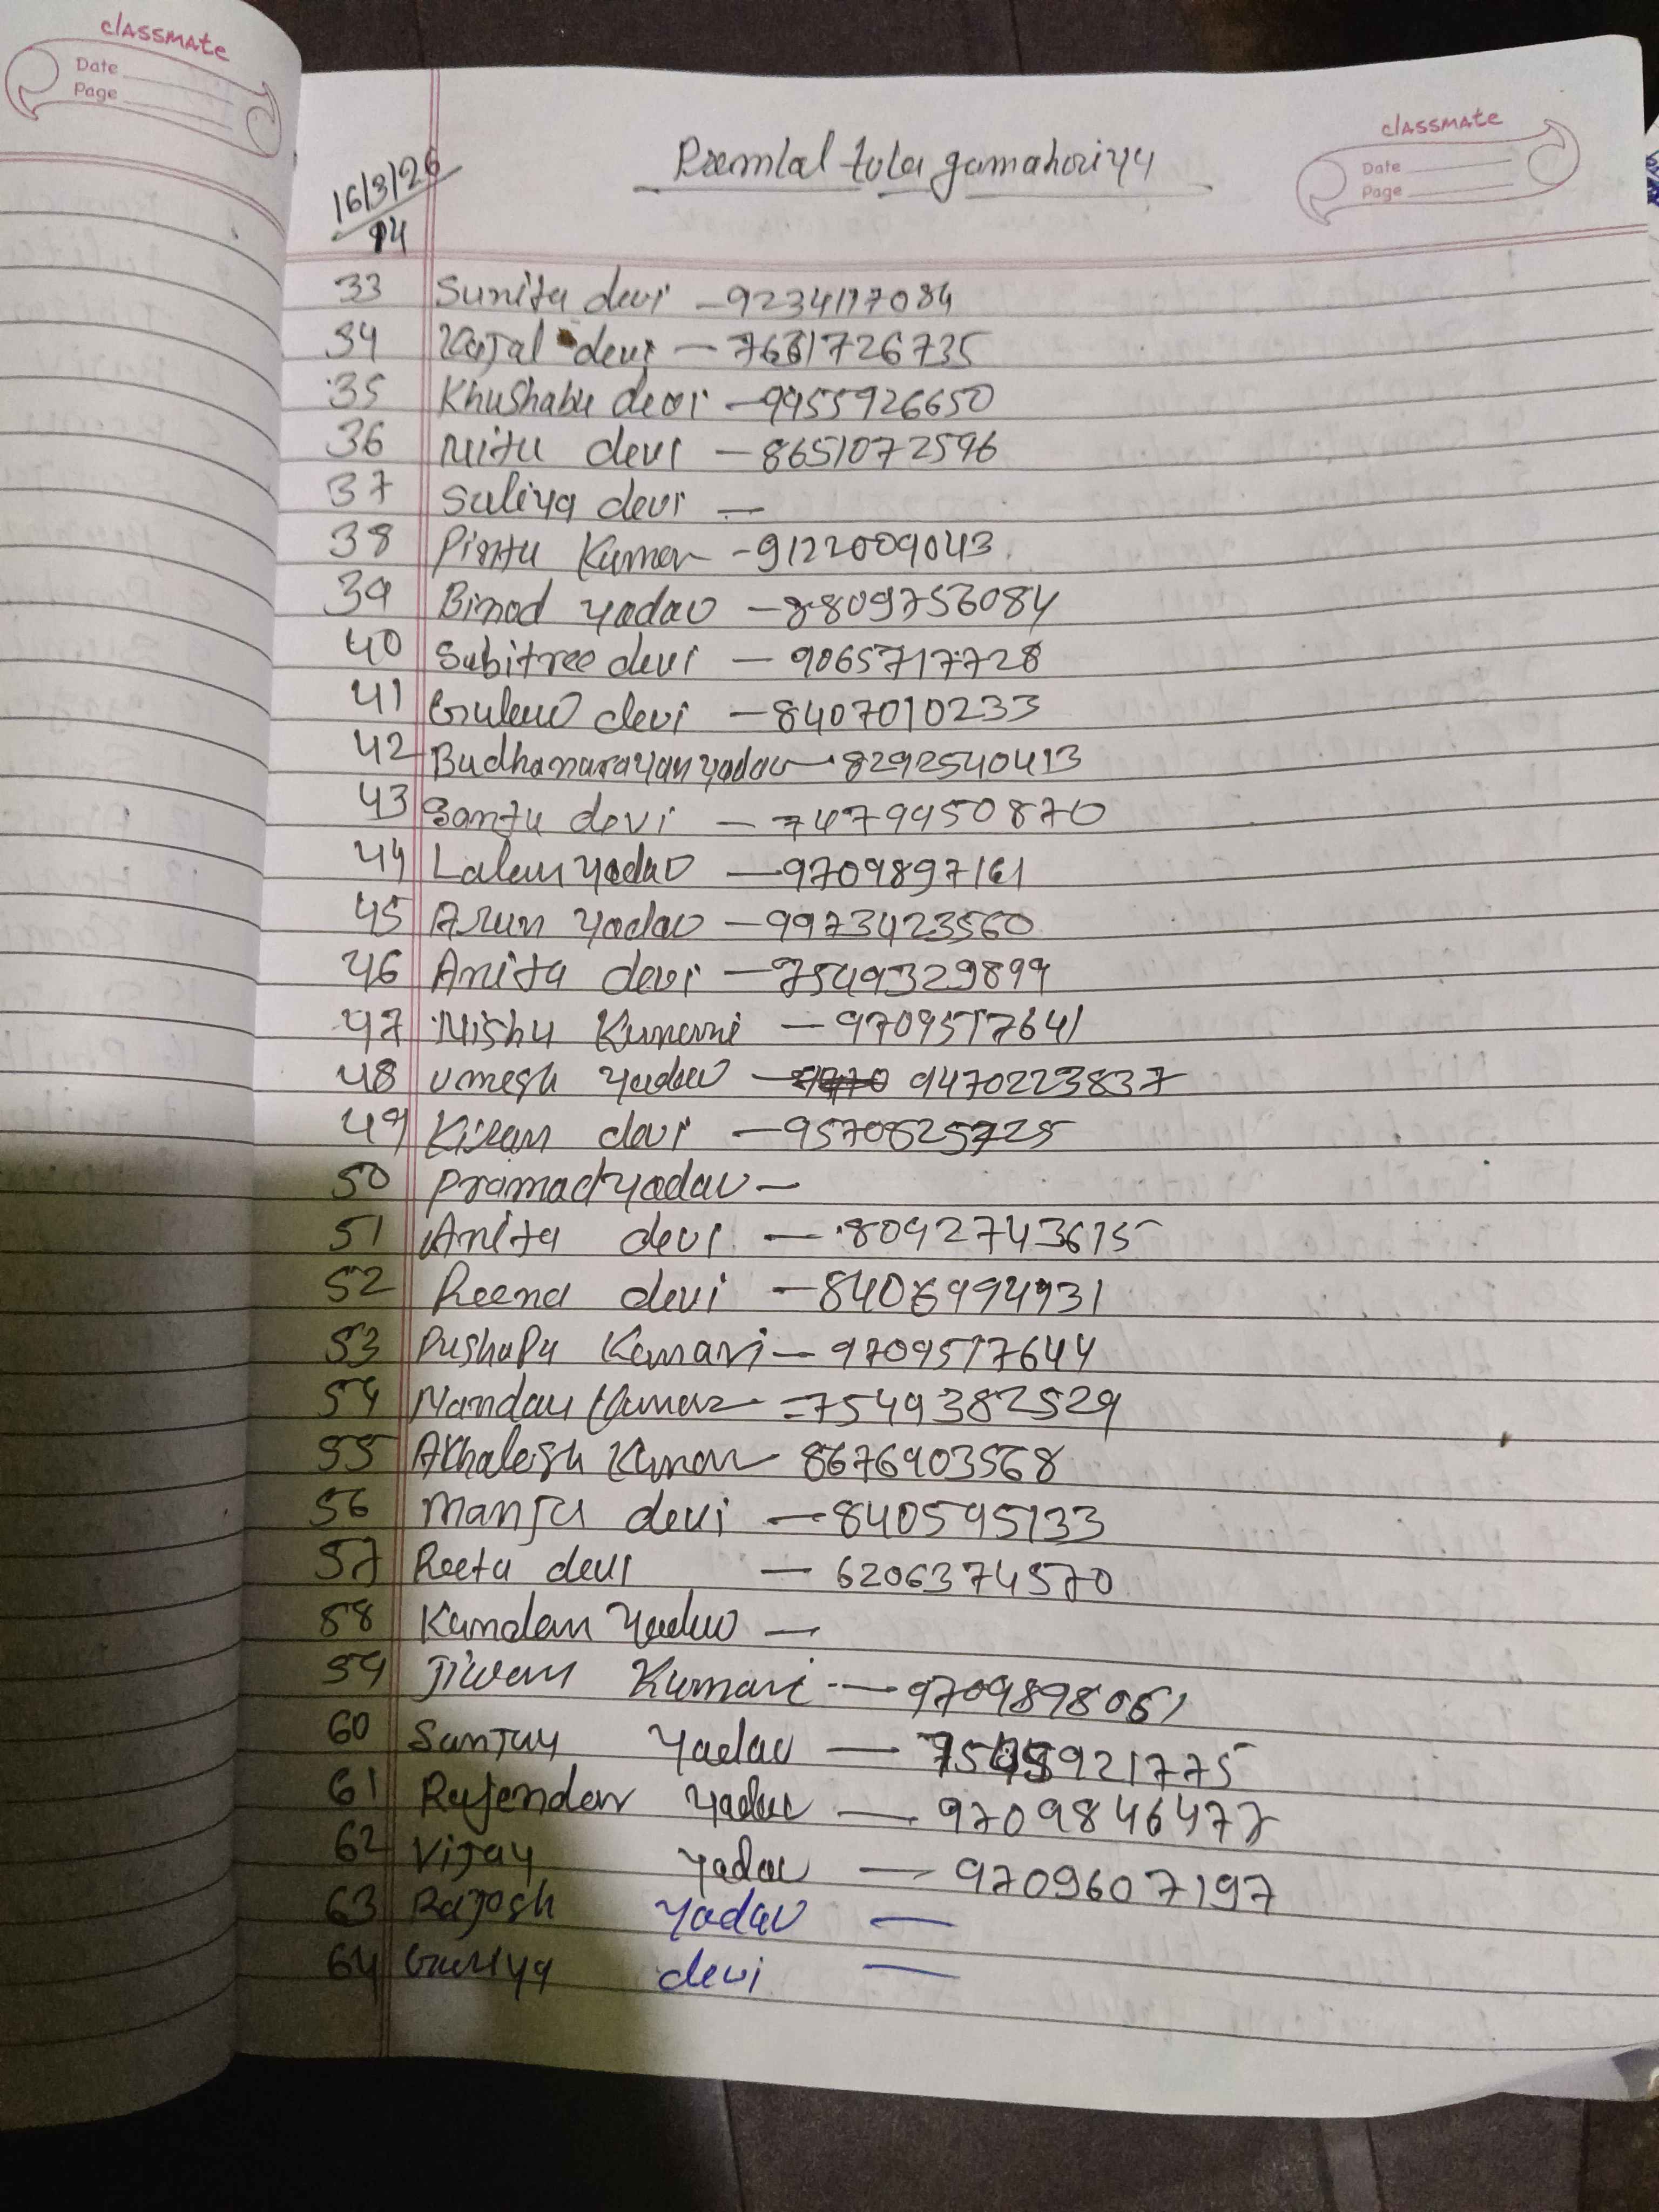 classmate
Date
Page
classmate
Date
Page
16/3/26
14
Premlal tola gamahariya
33 Sunita devi - 9234117084
34 Kajal devi - 7631726735
35 Khushabu devi - 9955926650
36 Nitu devi - 8651072596
37 Suliya devi -
38 Pintu Kumar - 9122009043
39 Binod yadav - 8809756084
40 Subitree devi - 9065717728
41 devi - 8407010233
42 Budhanarayan yadav - 8292540413
43 Sanju devi - 7479950870
44 Lalan yadav - 9709897161
45 Arun yadav - 9973423560
46 Anita devi - 7549329899
47 Nishu Kumari - 9709517641
48 Umesh yadav - 9470223837
49 Kiran devi - 9570825725
50 Pramad yadav -
51 Anita devi - 8092743615
52 Reena devi - 8406994931
53 PushaPa Kumari - 9709517644
54 Nandan Kumar = 7549382529
55 Akhalesh Kumar - 8676903568
56 Manju devi - 840595133
57 Reeta devi - 6206374570
58 Kundan Yadav -
59 Jiwan Kumari - 9709898051
60 Sanjay Yadav - 921775
61 Rajendar Yadav - 9709846477
62 Vijay Yadav - 9709607197
63 Rajesh Yadav -
64 Guriya devi -